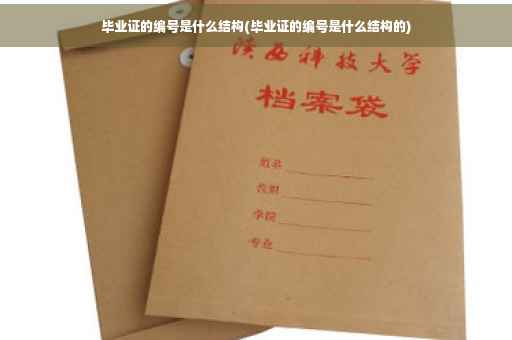 毕业证的编号是什么结构(毕业证的编号是什么结构的)
陕西科技大学
档案袋
姓名
学院
专业